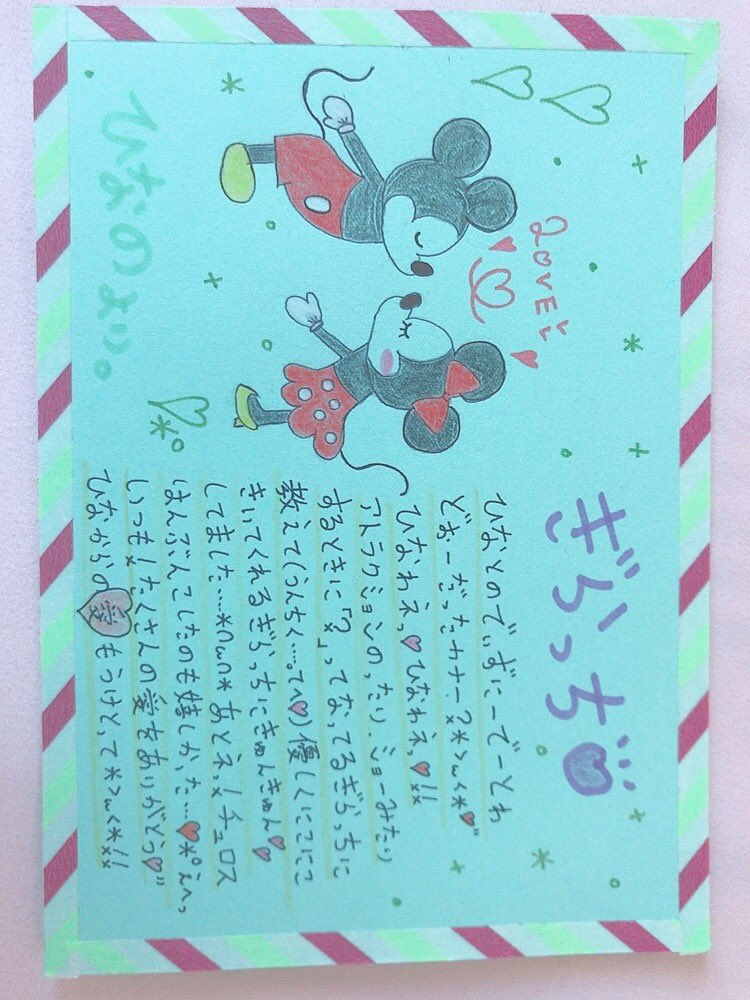 LOVE!!
ぎらっち
ひなとのでぃずにーでーとわ
どぉーだったカナー?*>ω<*
ひなわネっ ひなわネっ !!
アトラクションのったり、ショーみたり
するときに「?」ってなってるぎらっちに
教えて(うんちく…。てへ)優しくにこにこ
きいてくれるぎらっちにきゅんきゅん
してました…*∩ω∩* あとネっ!チュロス
はんぶんこしたのも嬉しかった… *°えへっ
いつも!たくさんの愛をありがとう
ひなからの愛もうけとって*>ω<*!!
ひなのより。